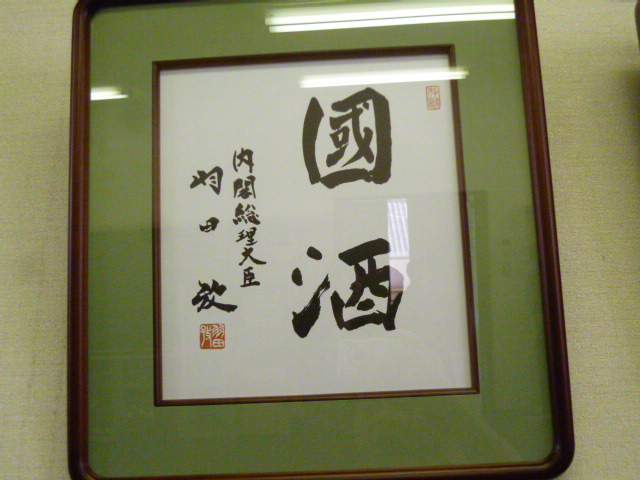 國酒
内閣総理大臣
羽田孜